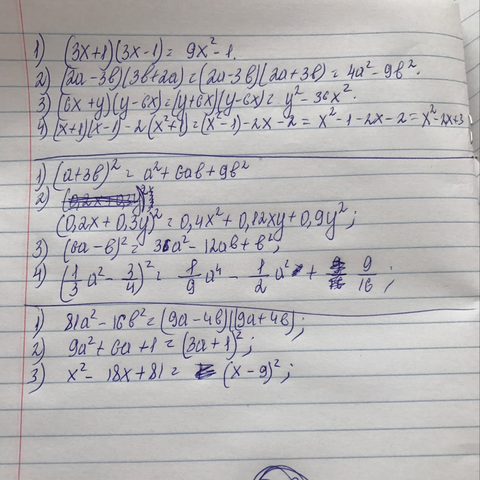 1) (3x+1)(3x-1) = 9x²-1.
2) (2a-3b)(3b+2a) = (2a-3b)(2a+3b) = 4a²-9b².
3) (6x+y)(y-6x) = (y+6x)(y-6x) = y²-36x².
4) (x+1)(x-1)-2(x²+1) = (x²-1)-2x-2 = x²-1-2x-2 = x²-2x+3
1) (a+3b)² = a²+6ab+9b²
2)
(0,2x+0,3y)² = 0,4x²+0,12xy+0,9y²;
3) (6a-b)² = 36a²-12ab+b²;
4) (1/3 a² - 3/4)² = 1/9 a⁴ - 1/2 a² + 9/16;
1) 81a²-16b² = (9a-4b)(9a+4b);
2) 9a²+6a+1 = (3a+1)²;
3) x²-18x+81 = (x-9)²;